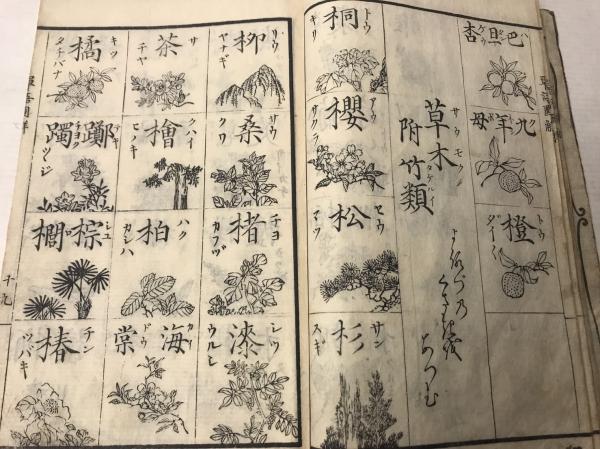 巴旦杏
九年母
橙 トウ
草木 サウモク
附竹類 タケルイ
桐 トウ キリ
櫻 アウ サクラ
松 セウ マツ
杉 サン スギ
柳 リウ ヤナギ
桑 サウ クワ
楮 チヨ カフヅ
漆 シツ ウルシ
茶 サ チヤ
檜 クハイ ヒノキ
柏 ハク カシハ
海棠 カイ ドウ
橘 キツ タチバナ
躑躅
棕櫚
椿 チン ツバキ
十九